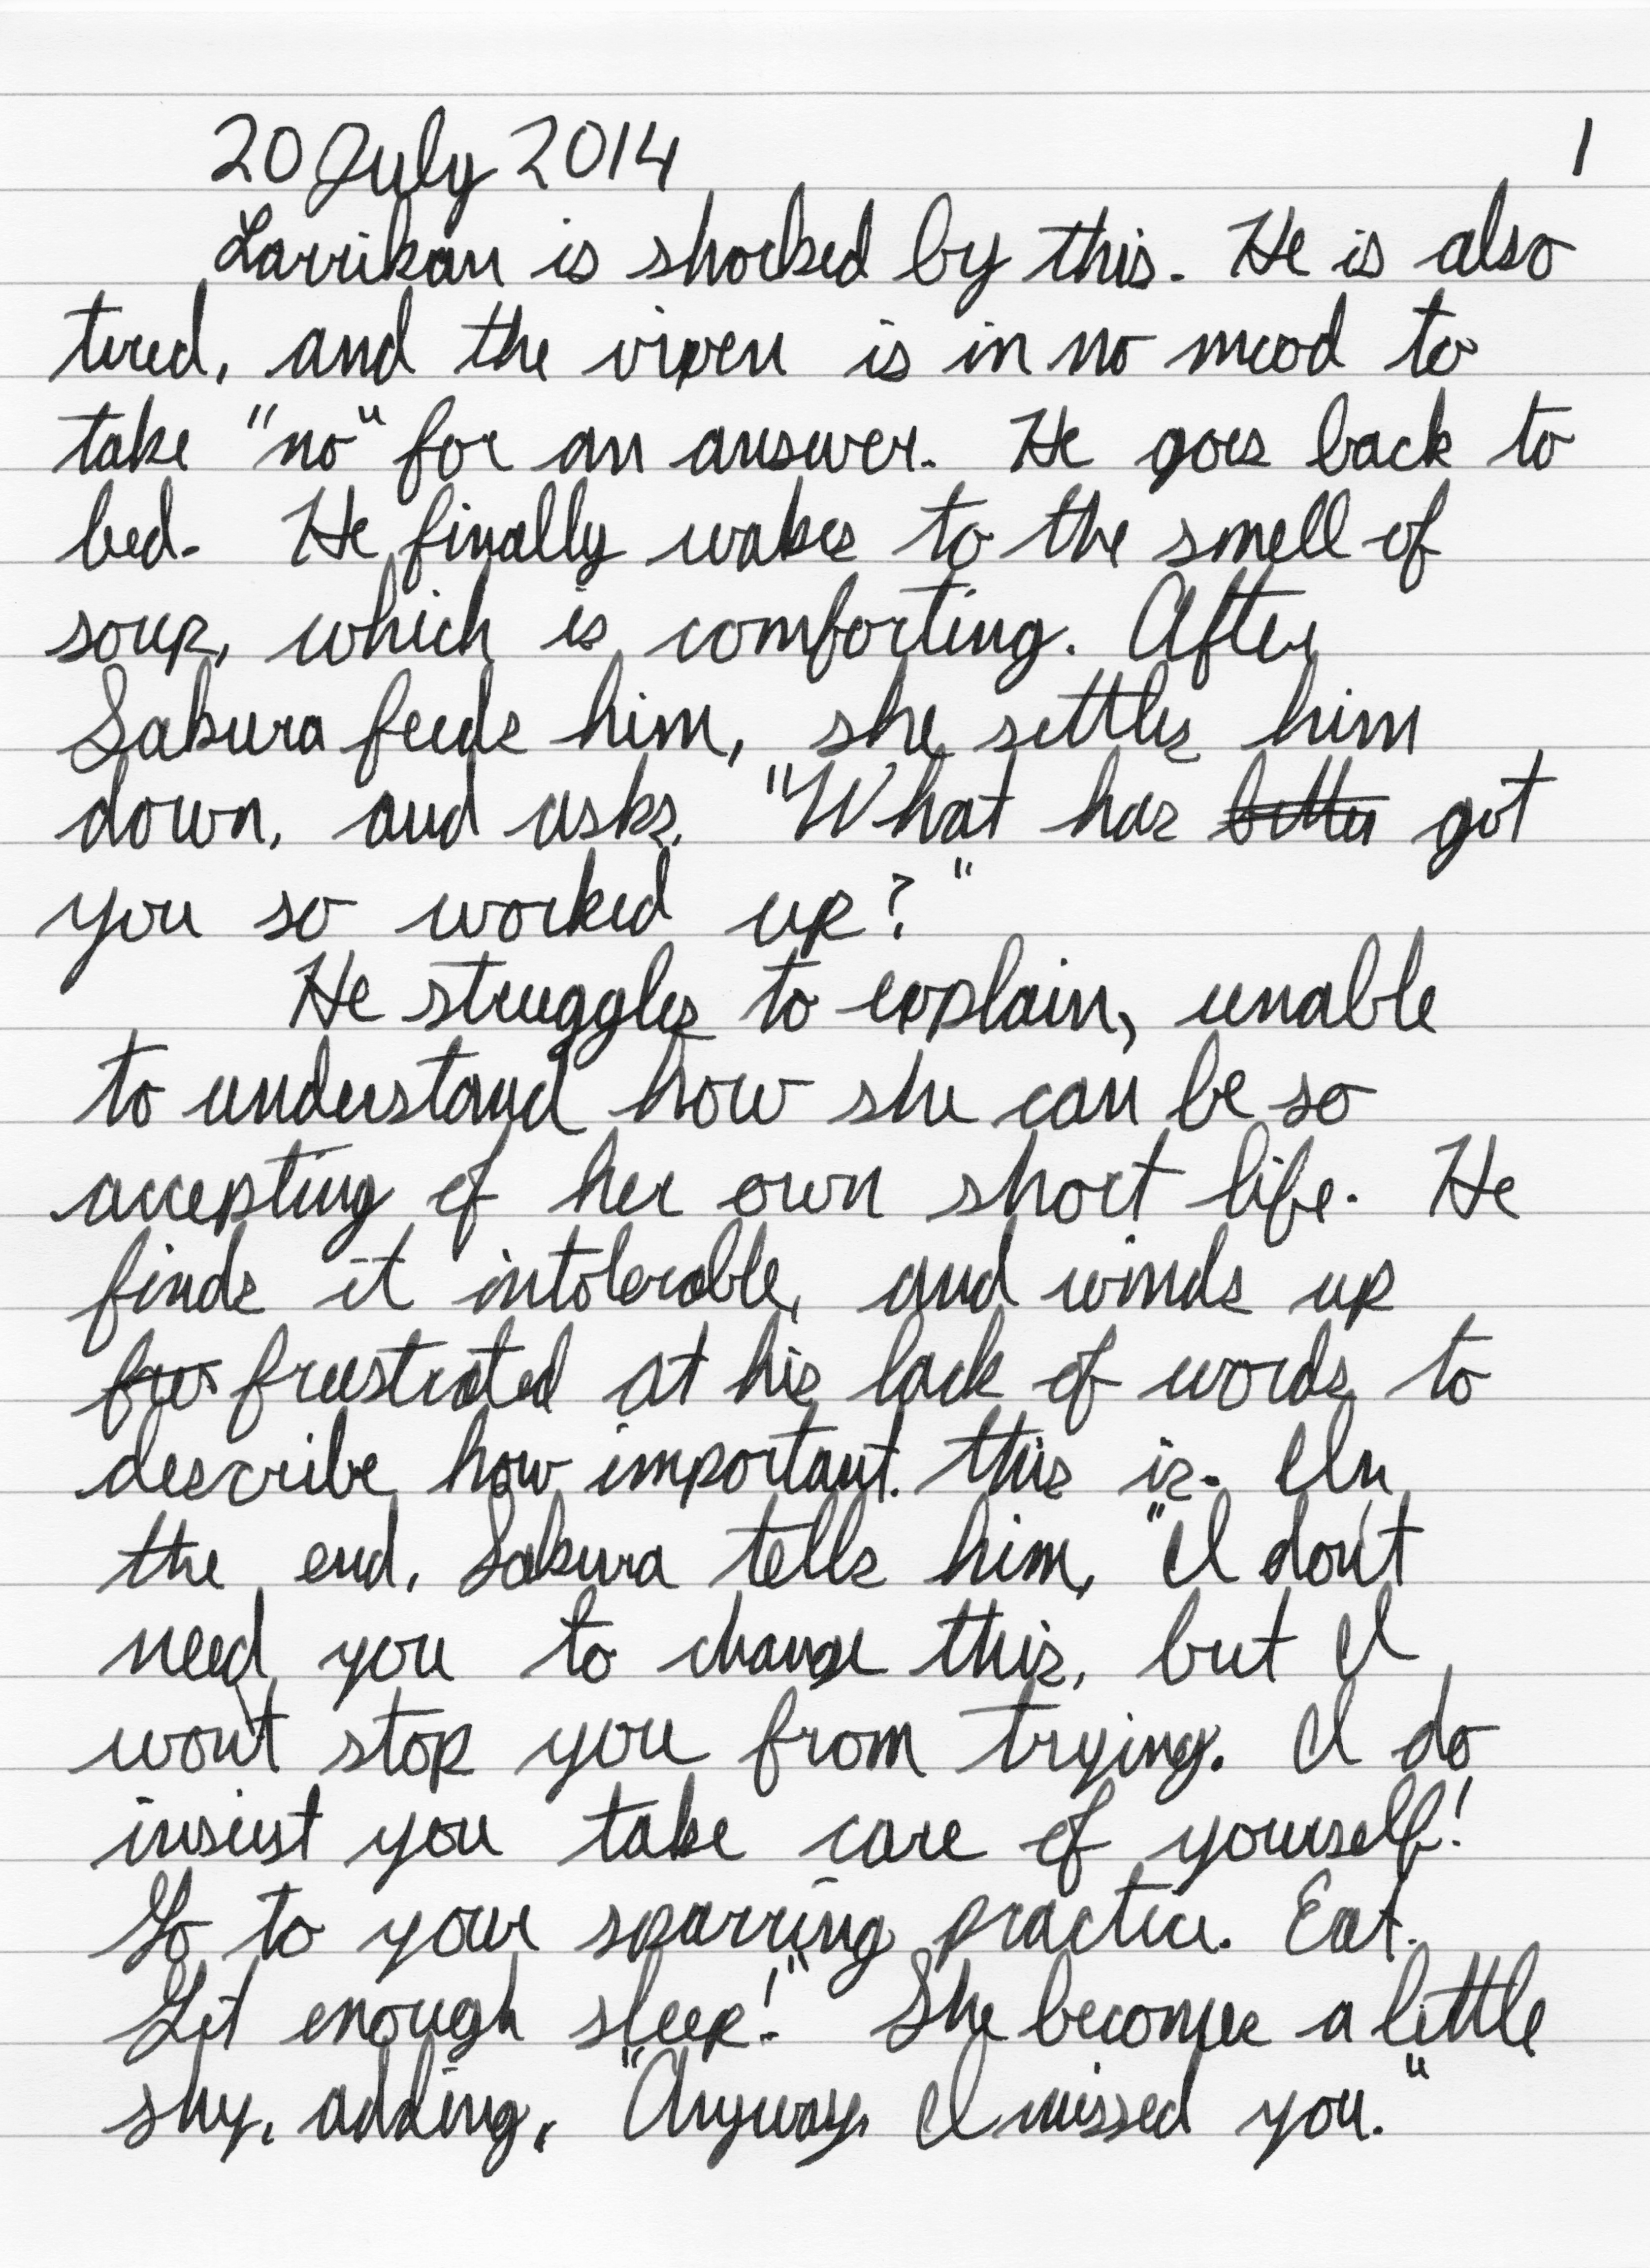 20 July 2014 1
Larrikan is shocked by this. He is also
tired, and the vixen is in no mood to
take "no" for an answer. He goes back to
bed. He finally wakes to the smell of
soup, which is comforting. After
Sakura feeds him, she settles him
down, and asks, "What has better got
you so worked up?"
He struggles to explain, unable
to understand how she can be so
accepting of her own short life. He
finds it intolerable, and winds up
frus frustrated at his lack of words to
describe how important this is. In
the end, Sakura tells him, "I don't
need you to change this, but I
won't stop you from trying. I do
insist you take care of yourself!
Go to your sparring practice. Eat.
Get enough sleep!" She becomes a little
shy, adding, "Anyway, I missed you."